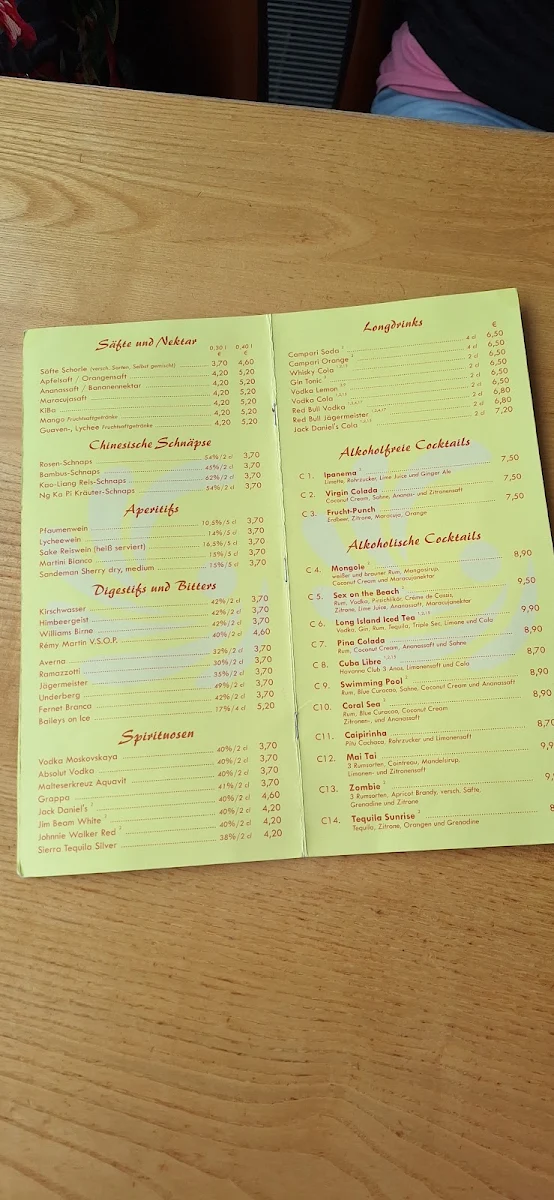 Säfte und Nektar
0,30 l 0,40 l
€ €
Säfte Schorle (versch. Sorten, Selbst gemischt) 3,70 4,60
Apfelsaft / Orangensaft 4,20 5,20
Ananassaft / Bananennektar 4,20 5,20
Maracujasaft 4,20 5,20
KiBa 4,20 5,20
Mango Fruchtsaftgetränke 4,20 5,20
Guaven-, Lychee Fruchtsaftgetränke 4,20 5,20
Chinesische Schnäpse
Rosen-Schnaps 54%/2 cl 3,70
Bambus-Schnaps 45%/2 cl 3,70
Kao-Liang Reis-Schnaps 62%/2 cl 3,70
Ng Ka Pi Kräuter-Schnaps 54%/2 cl 3,70
Aperitifs
Pflaumenwein 10,5%/5 cl 3,70
Lycheewein 14%/5 cl 3,70
Sake Reiswein (heiß serviert) 16,5%/5 cl 3,70
Martini Bianco 15%/5 cl 3,70
Sandeman Sherry dry, medium 15%/5 cl 3,70
Digestifs und Bitters
Kirschwasser 42%/2 cl 3,70
Himbeergeist 42%/2 cl 3,70
Williams Birne 42%/2 cl 3,70
Rémy Martin V.S.O.P. 40%/2 cl 4,60
Averna 32%/2 cl 3,70
Ramazzotti 30%/2 cl 3,70
Jägermeister 35%/2 cl 3,70
Underberg 49%/2 cl 3,70
Fernet Branca 42%/2 cl 3,70
Baileys on Ice 17%/4 cl 5,20
Spirituosen
Vodka Moskovskaya 40%/2 cl 3,70
Absolut Vodka 40%/2 cl 3,70
Malteserkreuz Aquavit 40%/2 cl 3,70
Grappa 41%/2 cl 3,70
Jack Daniel's 40%/2 cl 4,60
Jim Beam White 40%/2 cl 4,20
Johnnie Walker Red 40%/2 cl 4,20
Sierra Tequila Silver 38%/2 cl 4,20
Longdrinks
€
Campari Soda 4 cl 6,50
Campari Orange 4 cl 6,50
Whisky Cola 2 cl 6,50
Gin Tonic 2 cl 6,50
Vodka Lemon 2 cl 6,50
Vodka Cola 2 cl 6,50
Red Bull Vodka 2 cl 6,80
Red Bull Jägermeister 2 cl 6,80
Jack Daniel's Cola 2 cl 7,20
Alkoholfreie Cocktails
C 1. Ipanema 7,50
Limette, Rohrzucker, Lime Juice und Ginger Ale
C 2. Virgin Colada 7,50
Coconut Cream, Sahne, Ananas- und Zitronensaft
C 3. Frucht-Punch 7,50
Erdbeer, Zitrone, Maracuja, Orange
Alkoholische Cocktails
C 4. Mongole 8,90
weißer und brauner Rum, Mangosirup,
Coconut Cream und Maracujanektar
C 5. Sex on the Beach 9,50
Rum, Vodka, Pfirsichlikör, Crème de Cassis,
Zitrone, Lime Juice, Ananassaft, Maracujanektar
C 6. Long Island Iced Tea 9,90
Vodka, Gin, Rum, Tequila, Triple Sec, Limone und Cola
C 7. Pina Colada 8,90
Rum, Coconut Cream, Ananassaft und Sahne
C 8. Cuba Libre 8,70
Havanna Club 3 Anos, Limonensaft und Cola
C 9. Swimming Pool 8,90
Rum, Blue Curacao, Sahne, Coconut Cream und Ananassaft
C10. Coral Sea 8,90
Rum, Blue Curacoa, Coconut Cream
Zitronen-, und Ananassaft
C11. Caipirinha 8,70
Pitu Cachaca, Rohrzucker und Limonensaft
C12. Mai Tai 9,9
3 Rumsorten, Cointreau, Mandelsirup,
Limonen- und Zitronensaft
C13. Zombie 9,
3 Rumsorten, Apricot Brandy, versch. Säfte,
Grenadine und Zitrone
C14. Tequila Sunrise 8
Tequila, Zitrone, Orangen und Grenadine